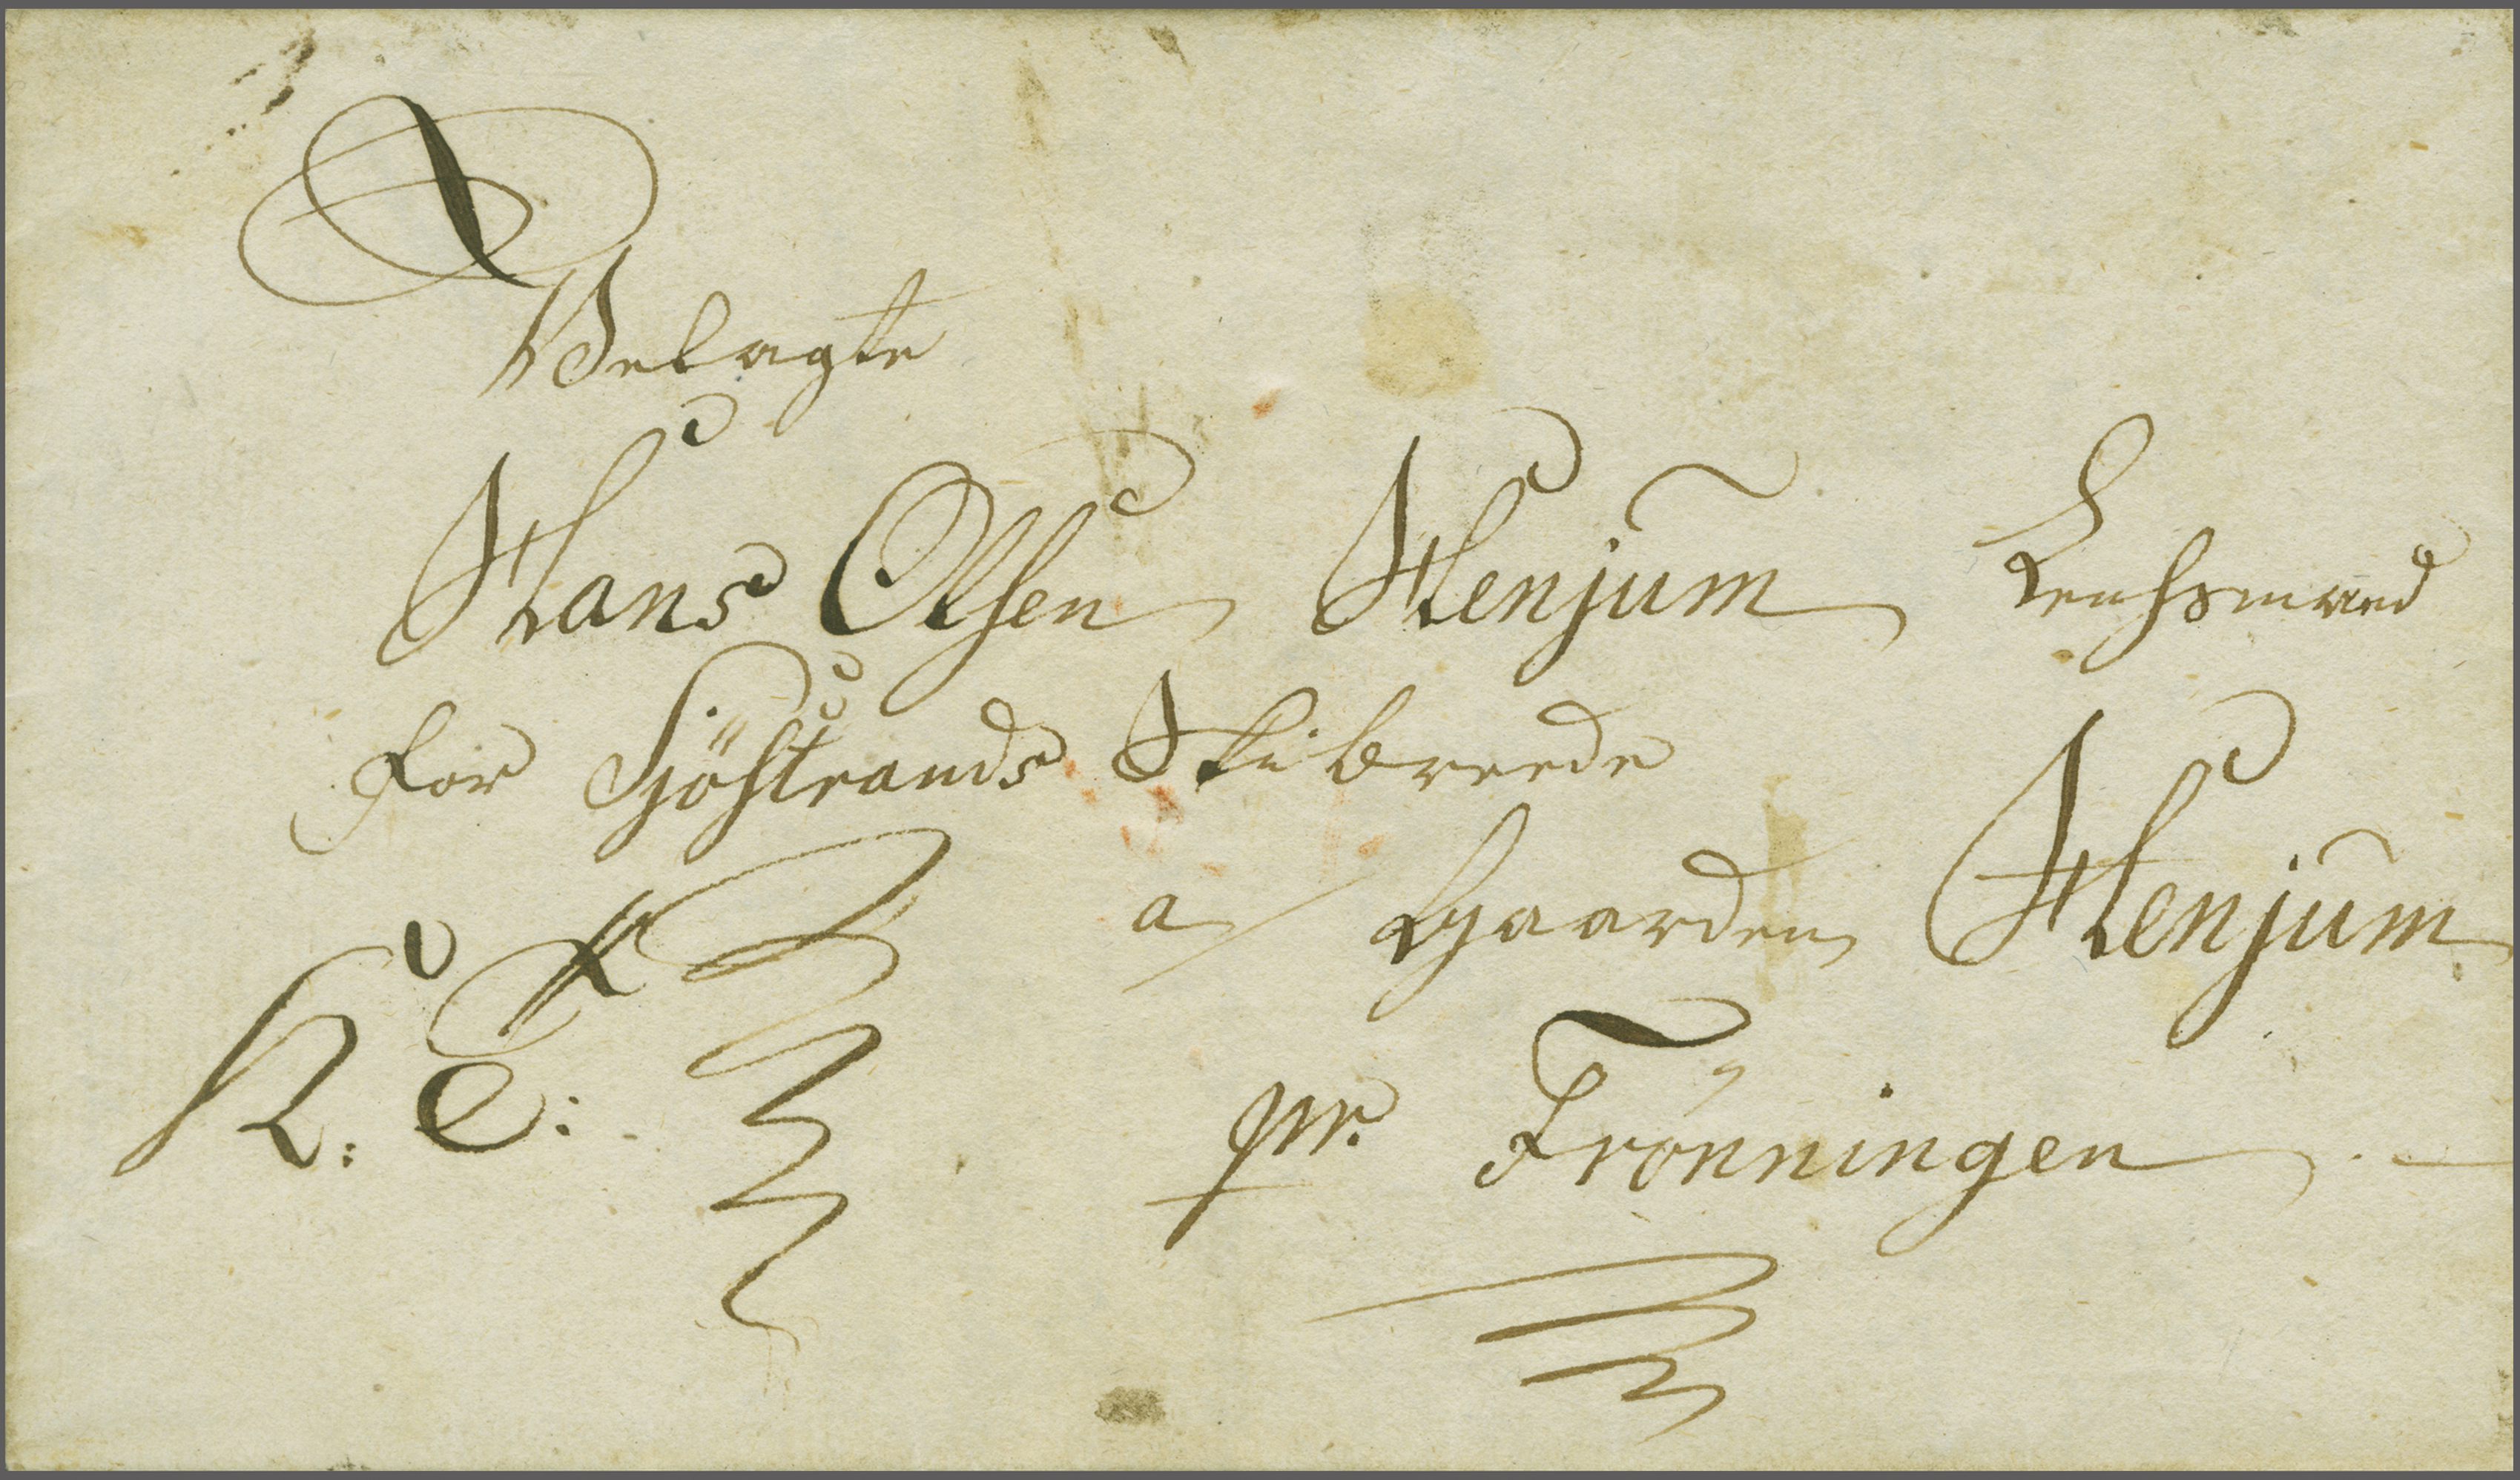 Velagte
Hans Olsen Henjum Lenhsmand
for Sjöstrands Skibreede
a/ Gaarden Henjum
K: T:
pr. Frönningen